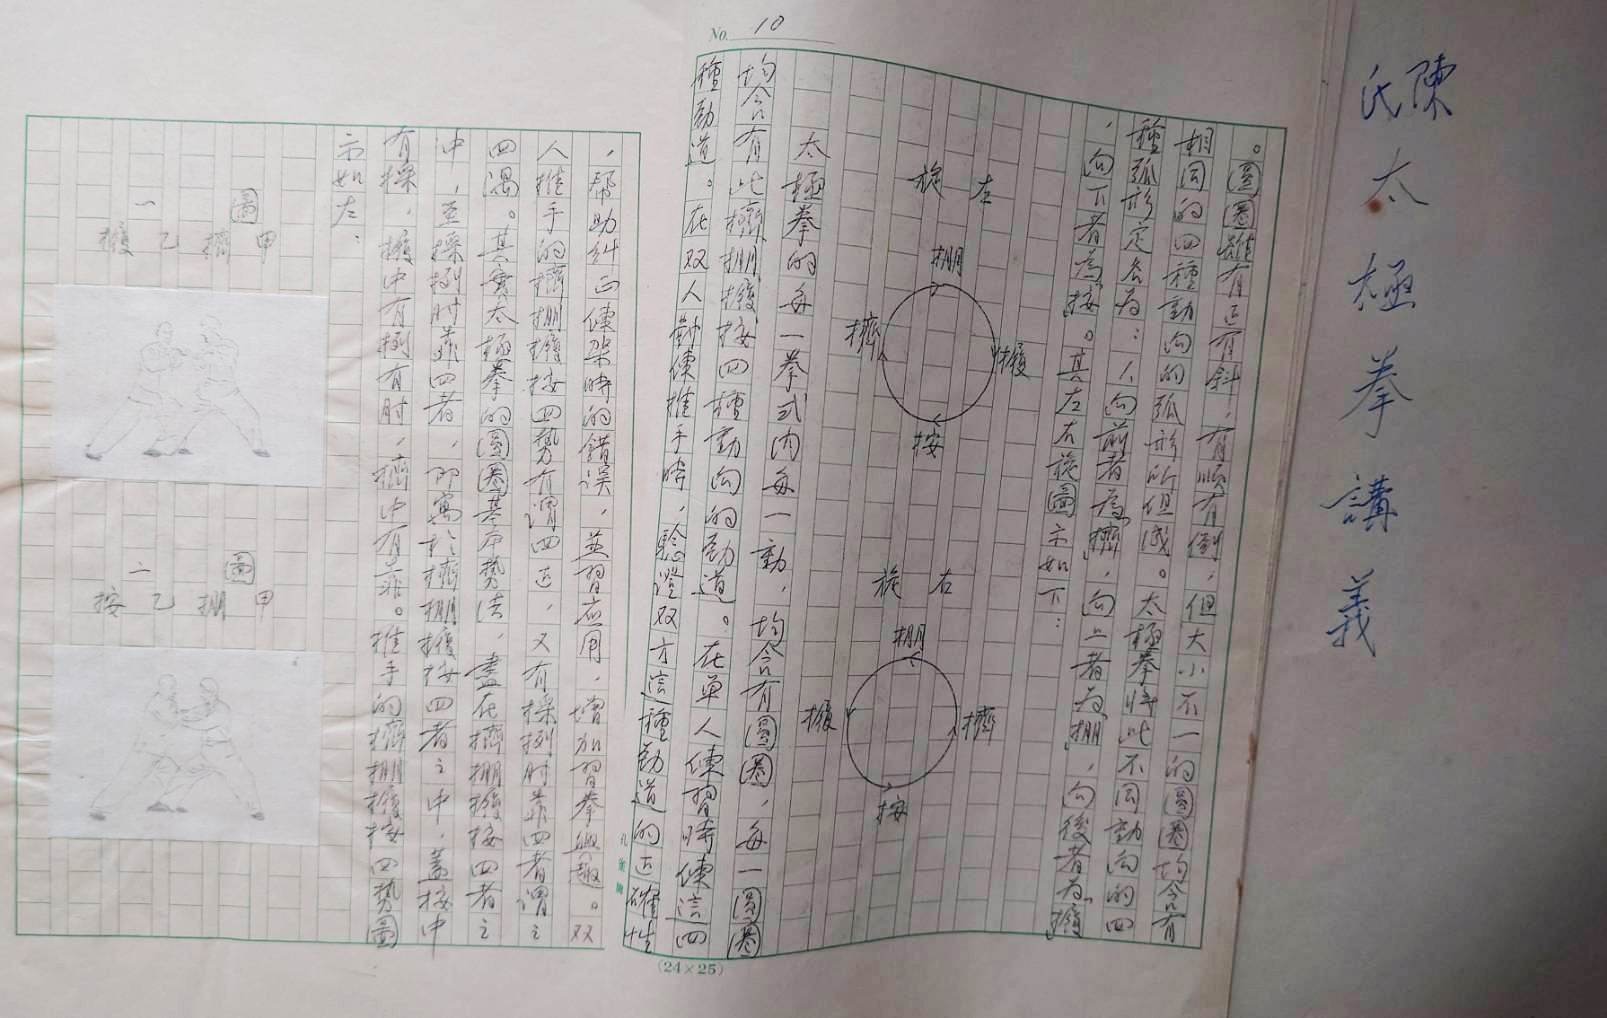 陳氏
太極拳講義
No. 10
。圓圈雖有正有斜，有順有倒，但大小不一的圓圈均含有
相同的四種動向的弧形所組成。太極拳將此不同動向的四
種弧形定名為：人向前者為擠，向上者為掤，向後者為擴
，向下者為按。其左右旋圖示如下：
左旋
掤
擠
擴
按
右旋
掤
擴
擠
按
太極拳的每一拳式內每一動，均含有圓圈，每一圓圈
均含有此擠掤擴按四種動向的勁道。在單人練習時練這四
種勁道。在双人對練推手時，驗證双方這種勁道的正確性
(24×25)
，幫助糾正練架時的錯误，並習应用，增加習拳興趣。双
人推手的擠掤擴按四勢有謂四正，又有採挒肘靠四者謂之
四隅。其實太極拳的圓圈基本势法，盡在擠掤擴按四者之
中，至採挒肘靠四者，即寓於擠掤擴按四者之中，蓋按中
有採，擴中有挒有肘，擠中有靠。推手的擠掤擴按四势圖
示如左：
圖一
甲擠乙擴
圖二
甲掤乙按